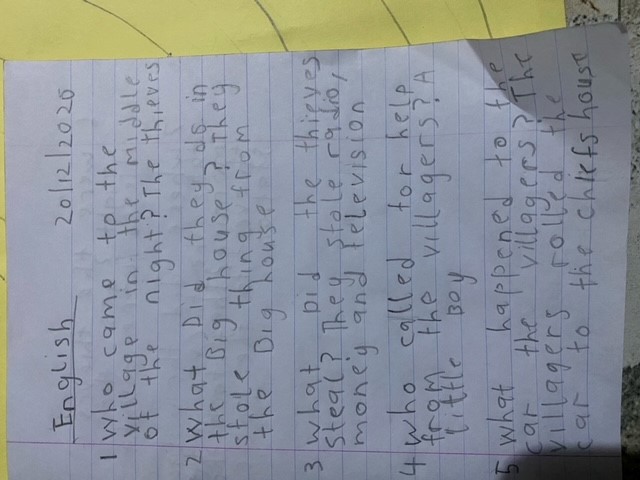 English 20/12/2020
1 Who came to the
village in the middle
of the night? The thieves
2 What Did they do in
the Big house? They
stole thing from
the Big house
3 What Did the thieves
steal? They stole radio,
money and television
4 Who called for help
from the villagers? A
little Boy
5 what happened to the
car the villagers? The
villagers rolled the
car to the chiefs house